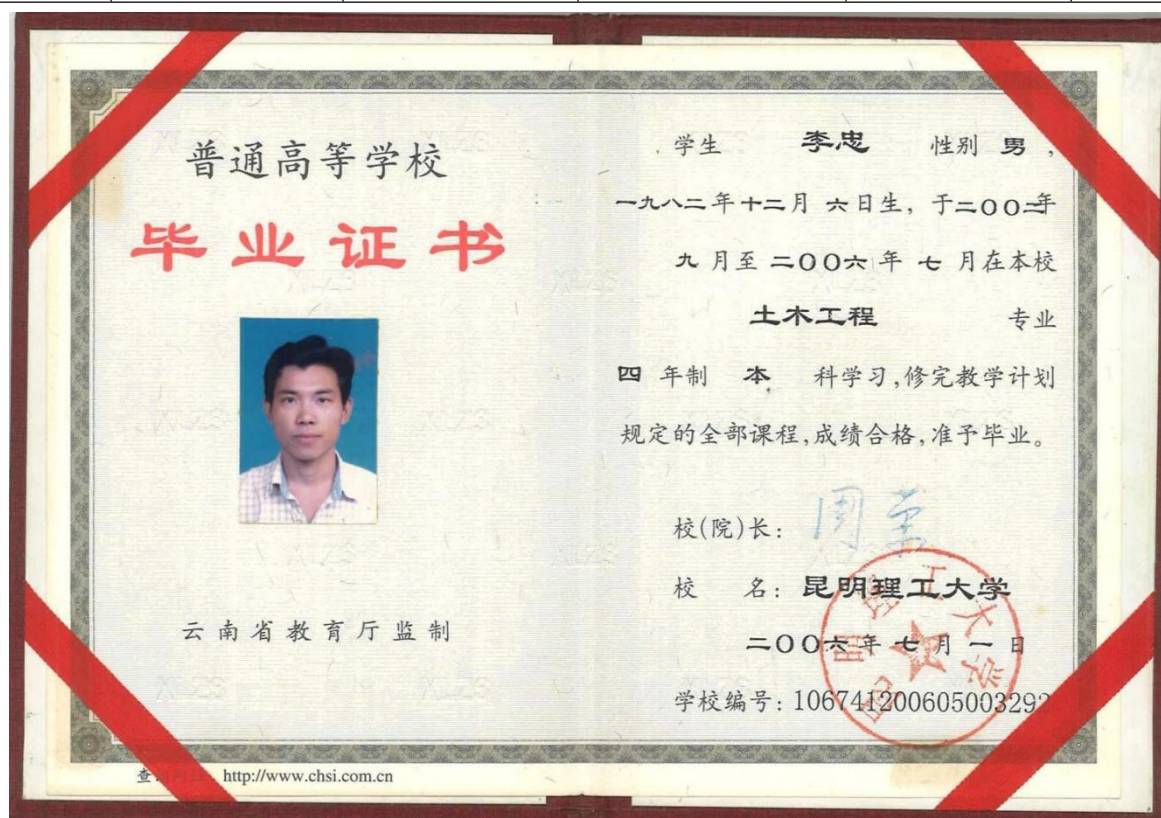 普通高等学校
毕业证书
云南省教育厅监制
http://www.chsi.com.cn
学生 李忠 性别 男,
一九八二年十二月 六日生, 于二〇〇二年
九月至 二〇〇六年 七 月在本校
土木工程 专业
四 年制 本 科学习,修完教学计划
规定的全部课程,成绩合格,准予毕业。
校(院)长: 周荣
校 名: 昆明理工大学
二〇〇六年 七月 一 日
学校编号: 10674120060500329
昆明理工大学